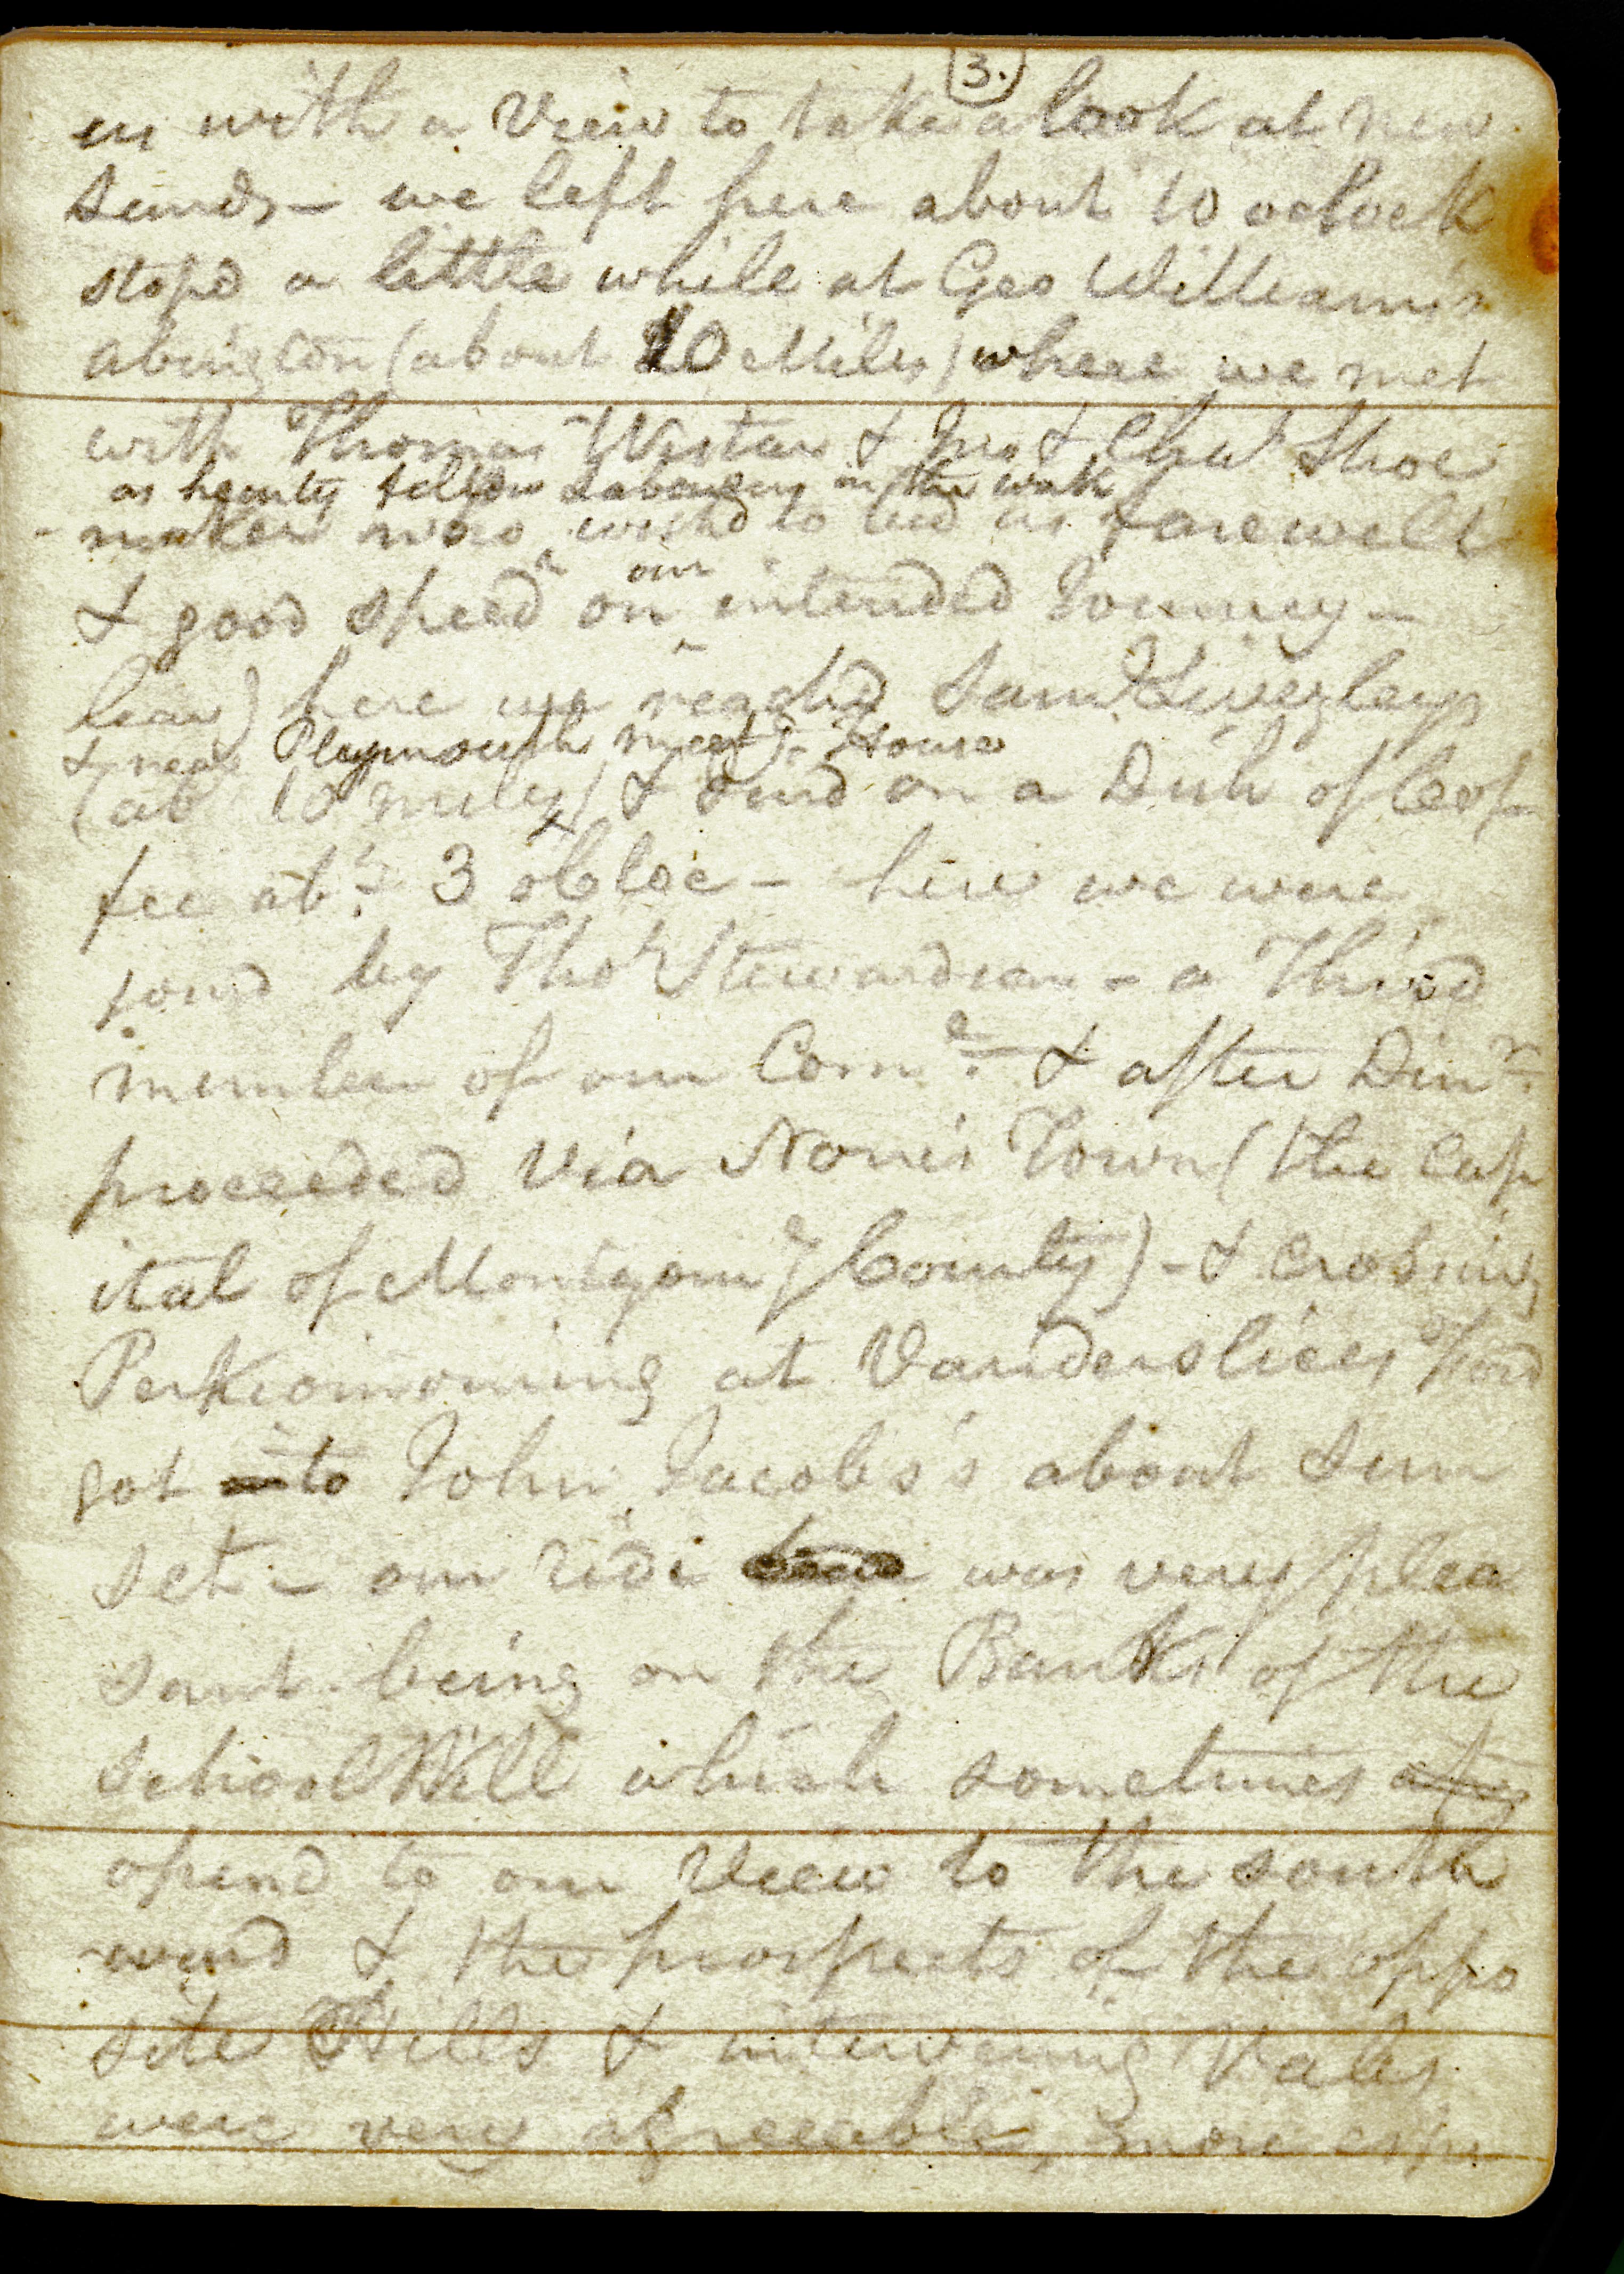 3.
en with a View to take a look at new
Lands - we left here about 10 oclock
stopd a little while at Geo Williams's
abington (about 10 Miles) where we met
with Thomas Wistar & Jno & Cha.s Shoe
as hearty fellow Labourers in the work
- maker who wishd to bid us farewell
our
& good speed on intended Journey -
here we reachd Saml Livezleys
& near Plymouth meetg. House
(abt 10 miles) & dind on a Dish of Cof
fee abt. 3 oCloc - here we were
joind by Thos Stewardson - a Third
member of our Come. & after Dinr.
proceeded Via Norris Town (the cap
ital of Montgomy County) - & crossing
Perkiomoming at Vanderslices Ford
got into John Jacobs's about Sun
set - our ride was very plea
sant being on the Banks of the
SchoolKill which sometimes
opend to our View to the south
ward & the prospects of the oppo
site Hills & intervening Vales
were very agreeable, more espe